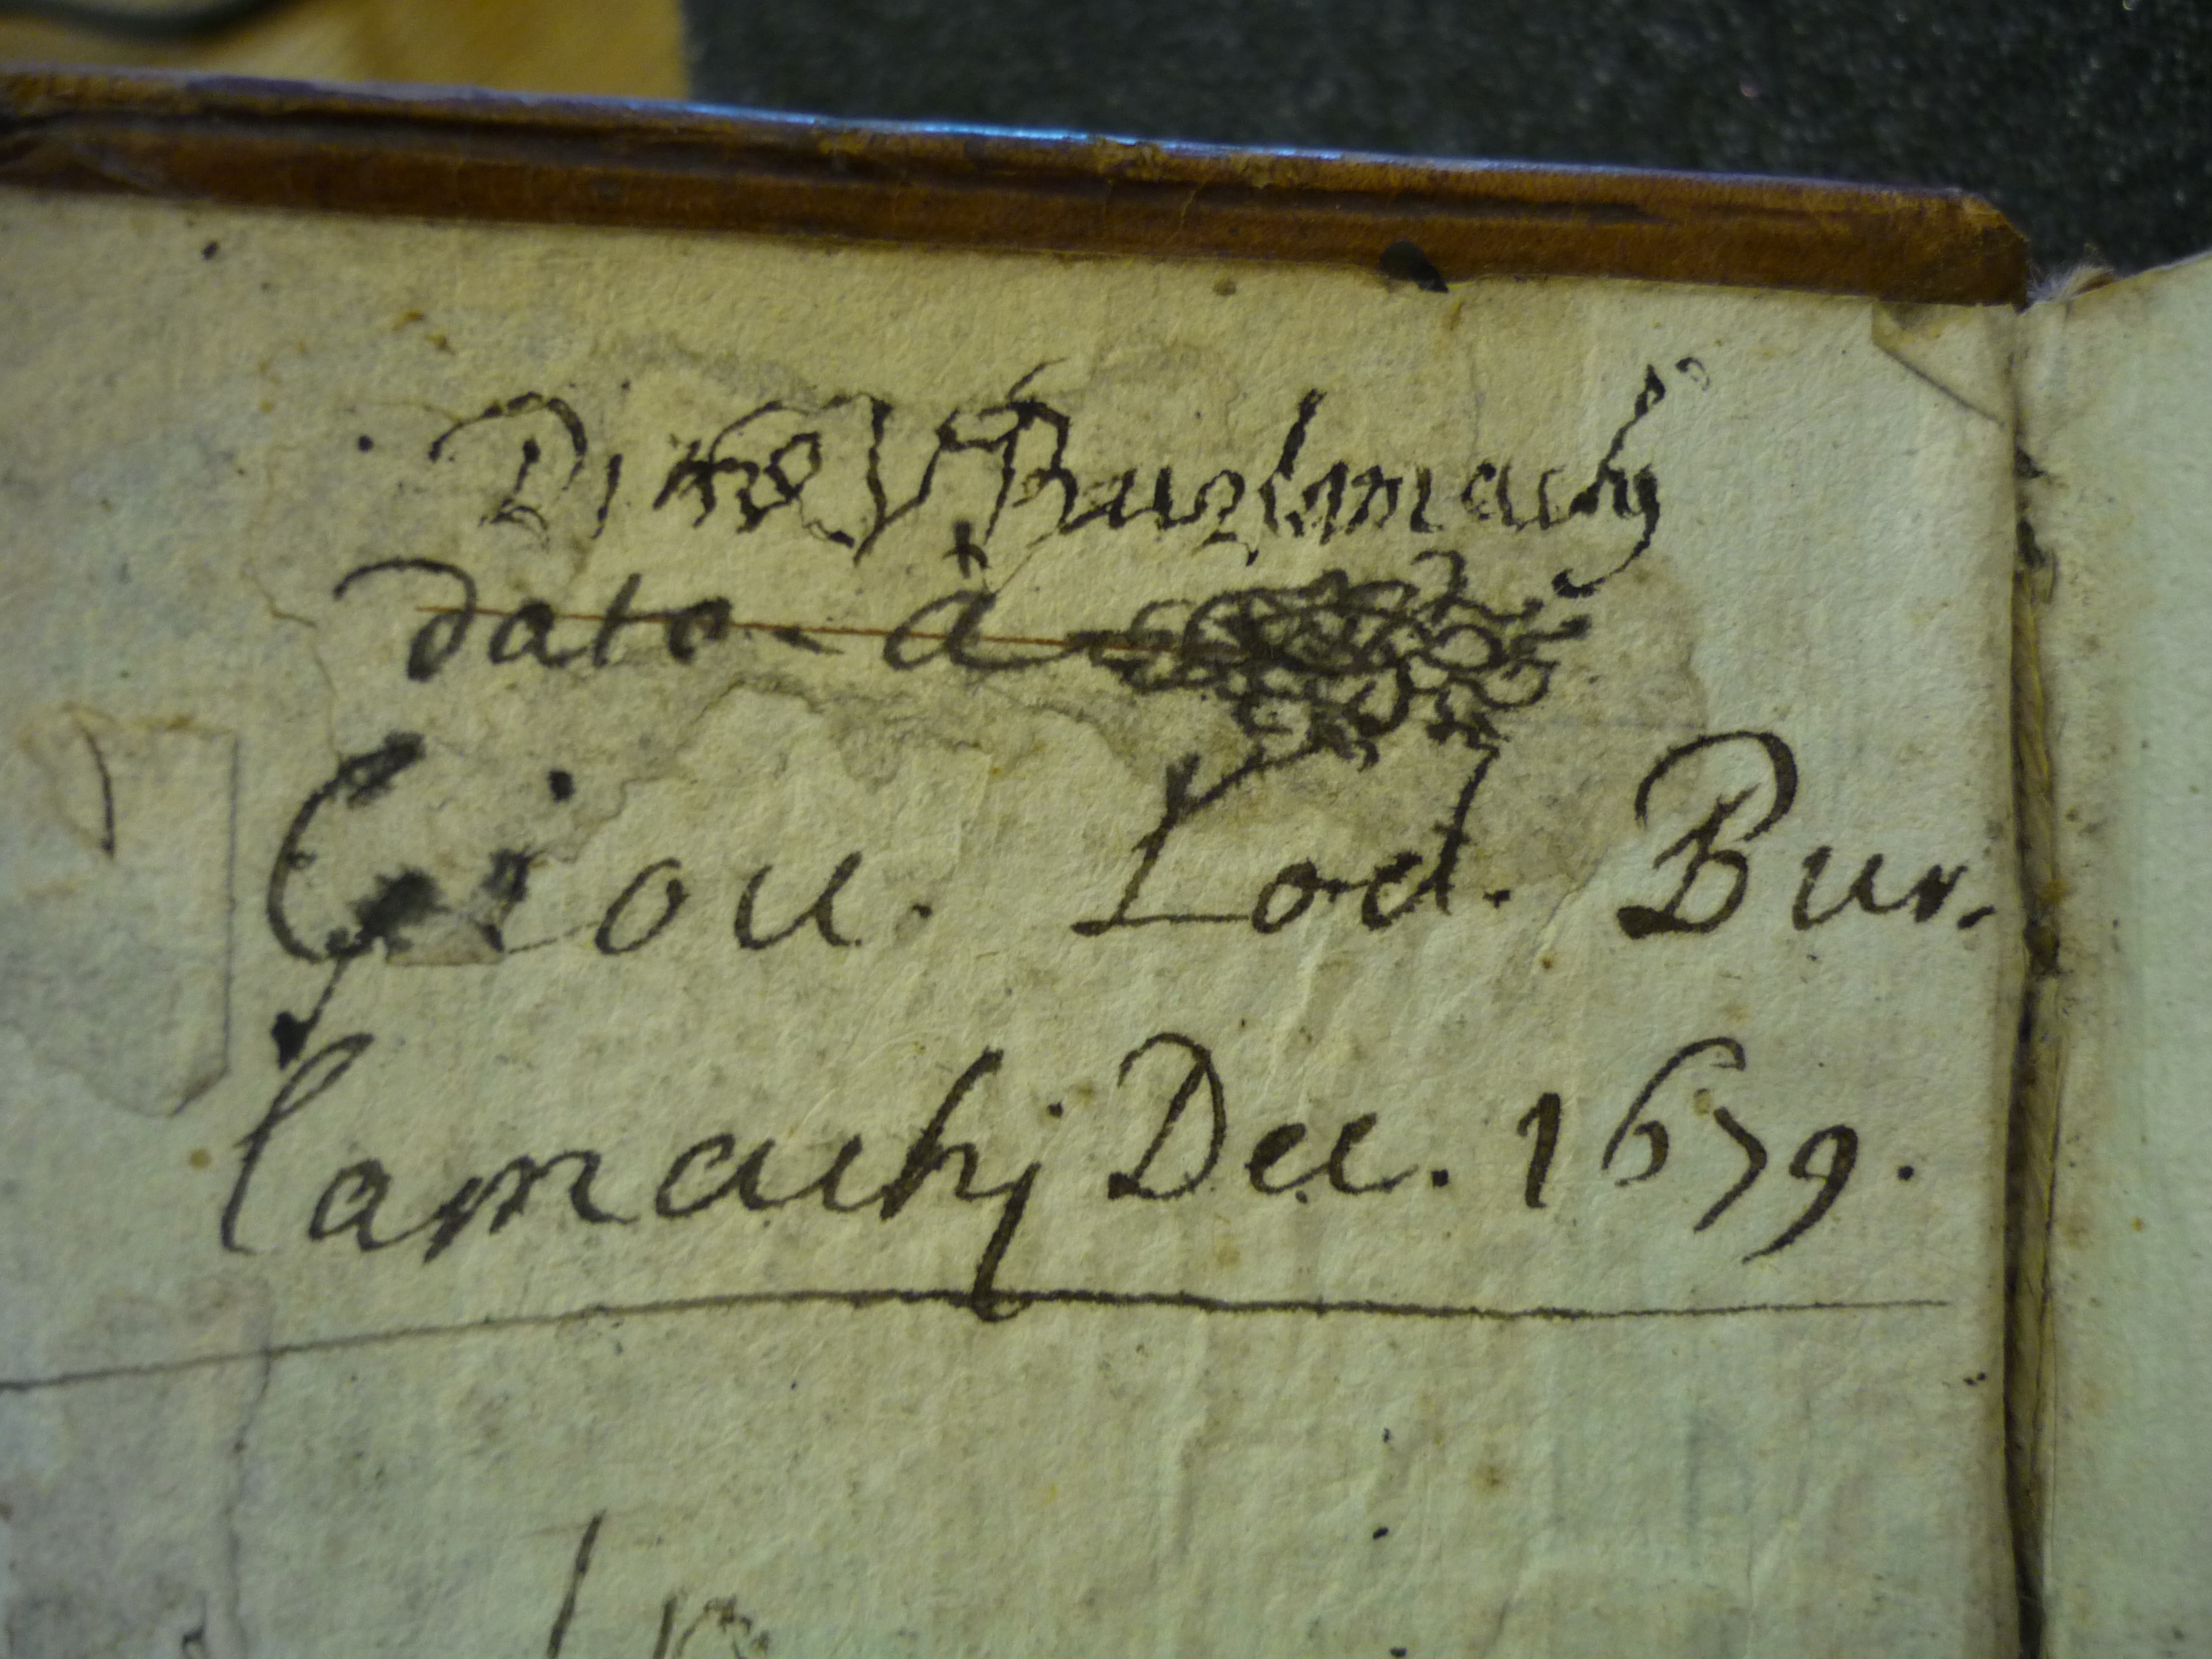 Di Burlamachj
dato à
Giou. Lod. Bur.
lamachj Dec. 1679.